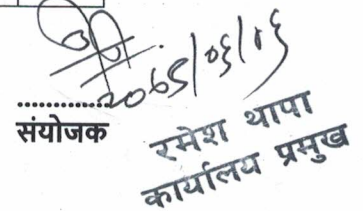 २०७९/०६/०६
संयोजक
रमेश थापा
कार्यालय प्रमुख